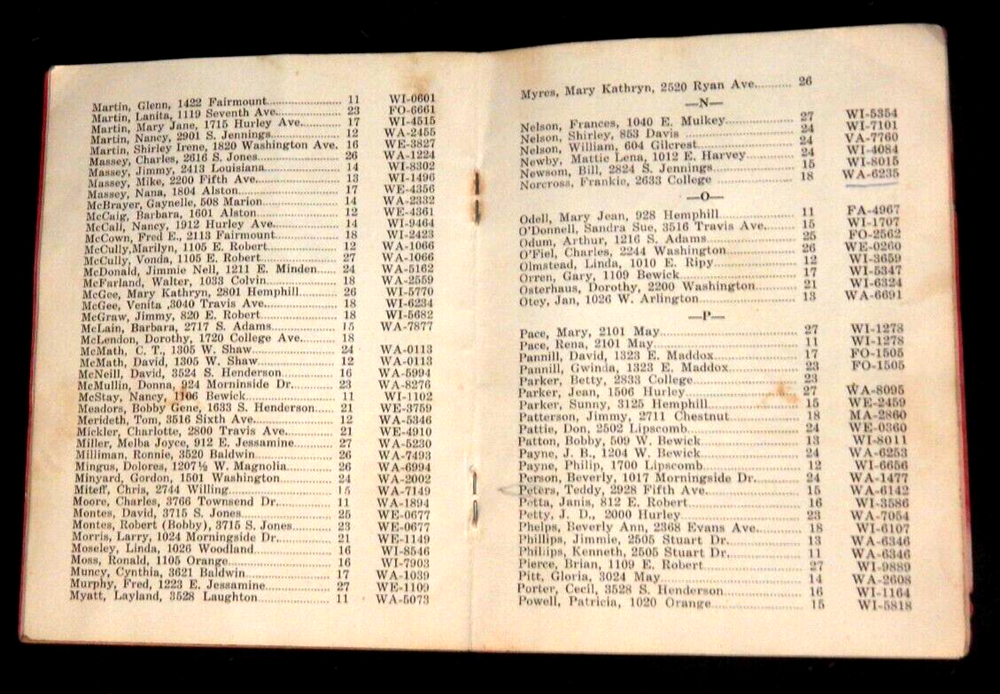 Martin, Glenn, 1422 Fairmount 11 WI-0601
Martin, Lanita, 1119 Seventh Ave. 23 FO-6661
Martin, Mary Jane, 1715 Hurley Ave. 17 WI-4515
Martin, Nancy, 2901 S. Jennings 12 WA-2455
Martin, Shirley Irene, 1820 Washington Ave. 16 WE-3827
Massey, Charles, 2616 S. Jones 26 WA-1224
Massey, Jimmy, 2413 Louisiana 14 WI-8302
Massey, Mike, 2200 Fifth Ave. 13 WI-1496
Massey, Nana, 1804 Alston 17 WE-4356
McBrayer, Gaynelle, 508 Marion 14 WA-2332
McCaig, Barbara, 1601 Alston 12 WE-4361
McCall, Nancy, 1912 Hurley Ave. 14 WI-9464
McCown, Fred E., 2113 Fairmount 18 WI-2423
McCully, Marilyn, 1105 E. Robert 12 WA-1066
McCully, Vonda, 1105 E. Robert 27 WA-1066
McDonald, Jimmie Nell, 1211 E. Minden 24 WA-5162
McFarland, Walter, 1033 Colvin 18 WA-2559
McGee, Mary Kathryn, 2801 Hemphill 26 WI-5770
McGee, Venita ,3040 Travis Ave. 18 WI-6234
McGraw, Jimmy, 820 E. Robert 18 WI-5682
McLain, Barbara, 2717 S. Adams 15 WA-7877
McLendon, Dorothy, 1720 College Ave. 18
McMath, C. T., 1305 W. Shaw 24 WA-0113
McMath, David, 1305 W. Shaw 12 WA-0113
McNeill, David, 3524 S. Henderson 16 WA-5994
McMullin, Donna, 924 Morninside Dr. 23 WA-8276
McStay, Nancy, 1106 Bewick 11 WI-1102
Meadors, Bobby Gene, 1633 S. Henderson 21 WE-3759
Merideth, Tom, 3516 Sixth Ave. 12 WA-5346
Mickler, Charlotte, 2800 Travis Ave. 21 WE-4910
Miller, Melba Joyce, 912 E. Jessamine 27 WA-5230
Milliman, Ronnie, 3520 Baldwin 26 WA-7493
Mingus, Dolores, 1207½ W. Magnolia 26 WA-6994
Minyard, Gordon, 1501 Washington 24 WA-2002
Miteff, Chris, 2744 Willing 15 WA-7149
Moore, Charles, 3766 Townsend Dr. 11 WA-1894
Montes, David, 3715 S. Jones 25 WE-0677
Montes, Robert (Bobby), 3715 S. Jones 23 WE-0677
Morris, Larry, 1024 Morningside Dr. 21 WE-1149
Moseley, Linda, 1026 Woodland 16 WI-8546
Moss, Ronald, 1105 Orange 16 WI-7903
Muncy, Cynthia, 3621 Baldwin 17 WA-1039
Murphy, Fred, 1223 E. Jessamine 27 WE-1109
Myatt, Layland, 3528 Laughton 11 WA-5073
Myres, Mary Kathryn, 2520 Ryan Ave. 26
—N—
Nelson, Frances, 1040 E. Mulkey 27 WI-5354
Nelson, Shirley, 853 Davis 24 WI-7101
Nelson, William, 604 Gilcrest 24 VA-7760
Newby, Mattie Lena, 1012 E. Harvey 24 WI-4084
Newsom, Bill, 2824 S. Jennings 15 WI-8015
Norcross, Frankie, 2633 College 18 WA-6235
—O—
Odell, Mary Jean, 928 Hemphill 11 FA-4967
O'Donnell, Sandra Sue, 3516 Travis Ave. 15 WI-1707
Odum, Arthur, 1216 S. Adams 25 FO-2562
O'Fiel, Charles, 2244 Washington 26 WE-0260
Olmstead, Linda, 1010 E. Ripy 12 WI-3659
Orren, Gary, 1109 Bewick 17 WI-5347
Osterhaus, Dorothy, 2200 Washington 21 WI-6324
Otey, Jan, 1026 W. Arlington 13 WA-6691
—P—
Pace, Mary, 2101 May 27 WI-1278
Pace, Rena, 2101 May 11 WI-1278
Pannill, David, 1323 E. Maddox 17 FO-1505
Pannill, Gwinda, 1323 E. Maddox 23 FO-1505
Parker, Betty, 2833 College 23
Parker, Jean, 1506 Hurley 27 WA-8095
Parker, Sunny, 3125 Hemphill 15 WE-2459
Patterson, Jimmy, 2711 Chestnut 18 MA-2860
Pattie, Don, 2502 Lipscomb 24 WE-0360
Patton, Bobby, 509 W. Bewick 13 WI-8011
Payne, J. B., 1204 W. Bewick 24 WA-6253
Payne, Philip, 1700 Lipscomb 12 WI-6656
Person, Beverly, 1017 Morningside Dr. 24 WA-1477
Peters, Teddy, 2928 Fifth Ave. 15 WA-6142
Petta, Janis, 812 E. Robert 16 WI-3586
Petty, J. D., 2000 Hurley 23 WA-7054
Phelps, Beverly Ann, 2368 Evans Ave. 18 WI-6107
Phillips, Jimmie, 2505 Stuart Dr. 13 WA-6346
Phillips, Kenneth, 2505 Stuart Dr. 11 WA-6346
Pierce, Brian, 1109 E. Robert 27 WI-9889
Pitt, Gloria, 3024 May 14 WA-2608
Porter, Cecil, 3528 S. Henderson 16 WI-1164
Powell, Patricia, 1020 Orange 15 WI-5818